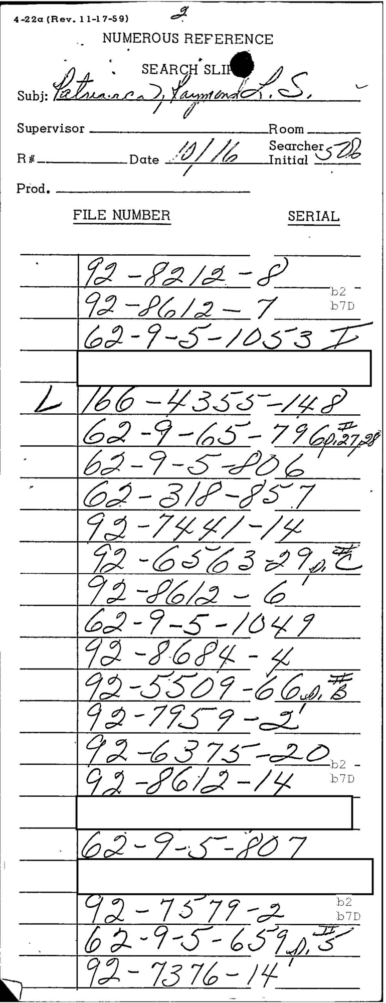 4-22a (Rev. 11-17-59)
2
NUMEROUS REFERENCE
SEARCH SLIP
Subj: Patriarca, Raymond L. S.
Supervisor Room
R# Date 10/16 Searcher Initial
Prod.
FILE NUMBER SERIAL
92-8212-8
b2
92-8612-7 b7D
62-9-5-1053 I
L 166-4355-148
62-9-65-796 II p.27,28
62-9-5-806
62-318-857
92-7441-14
92-6563-29 p. C
92-8612-6
62-9-5-1049
92-8684-4
92-5509-66 p. B
92-7959-2
92-6375-20
b2
92-8612-14 b7D
62-9-5-807
92-7579-2 b2
b7D
62-9-5-659 p. 5
92-7376-14